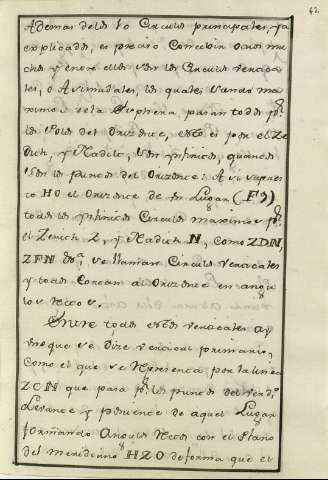 42
Ademas delos 10 Circulos principales, ya
explicados, es preciso Concevir otros mu
chos y entre ellos son los Circulos vertica
les, o Azimutales, los quales siendo ma
ximos de la Sphera pasan todos pr
los Polos del Orizonte, esto es por el Ze
nich, y Nadir, son ynfinitos, quantos
son los puntos del Orizonte: Asi supues
to HO el Orizonte de un Lugar (F 9)
todos los ynfinitos Circulos maximos pr
el Zenich Z, y Nadich N, como ZDN,
ZFN &a, se llaman Circulos verticales
y todos Cortan al Orizonte en angu
los rectos.
Entre todos estos verticales ay
uno que se dize vertical primario,
Como el que se representa por la linea
ZCN que pasa pr los puntos del verdo
Levante y poniente de aquel Lugar
formando Angulos rectos con el Plano
del meridiano HZO de forma que el